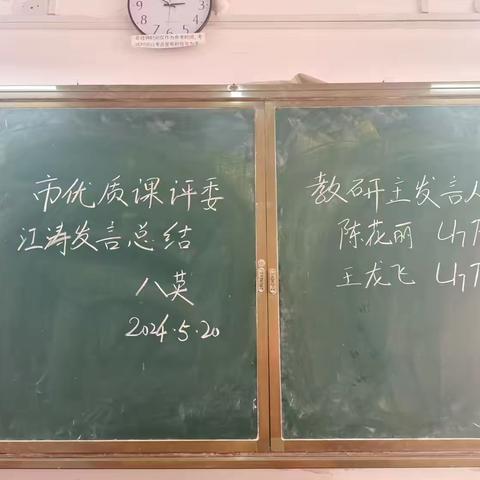 市优质课评委
江涛发言总结
八英
2024.5.20
教研主发言人
陈花丽 U7
王龙飞 U7